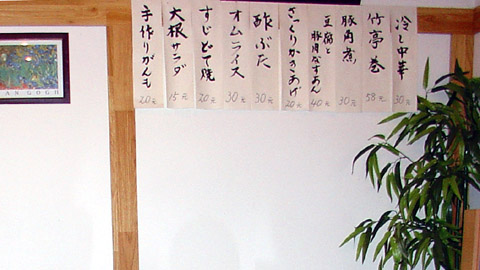 冷し中華
30元
竹亭巻
58元
豚角煮
30元
豆腐と
豚肉なすあん
40元
さっくりかきあげ
20元
酢ぶた
30元
オムライス
30元
すじどて焼
20元
大根サラダ
15元
手作りがんも
20元
VAN GOGH